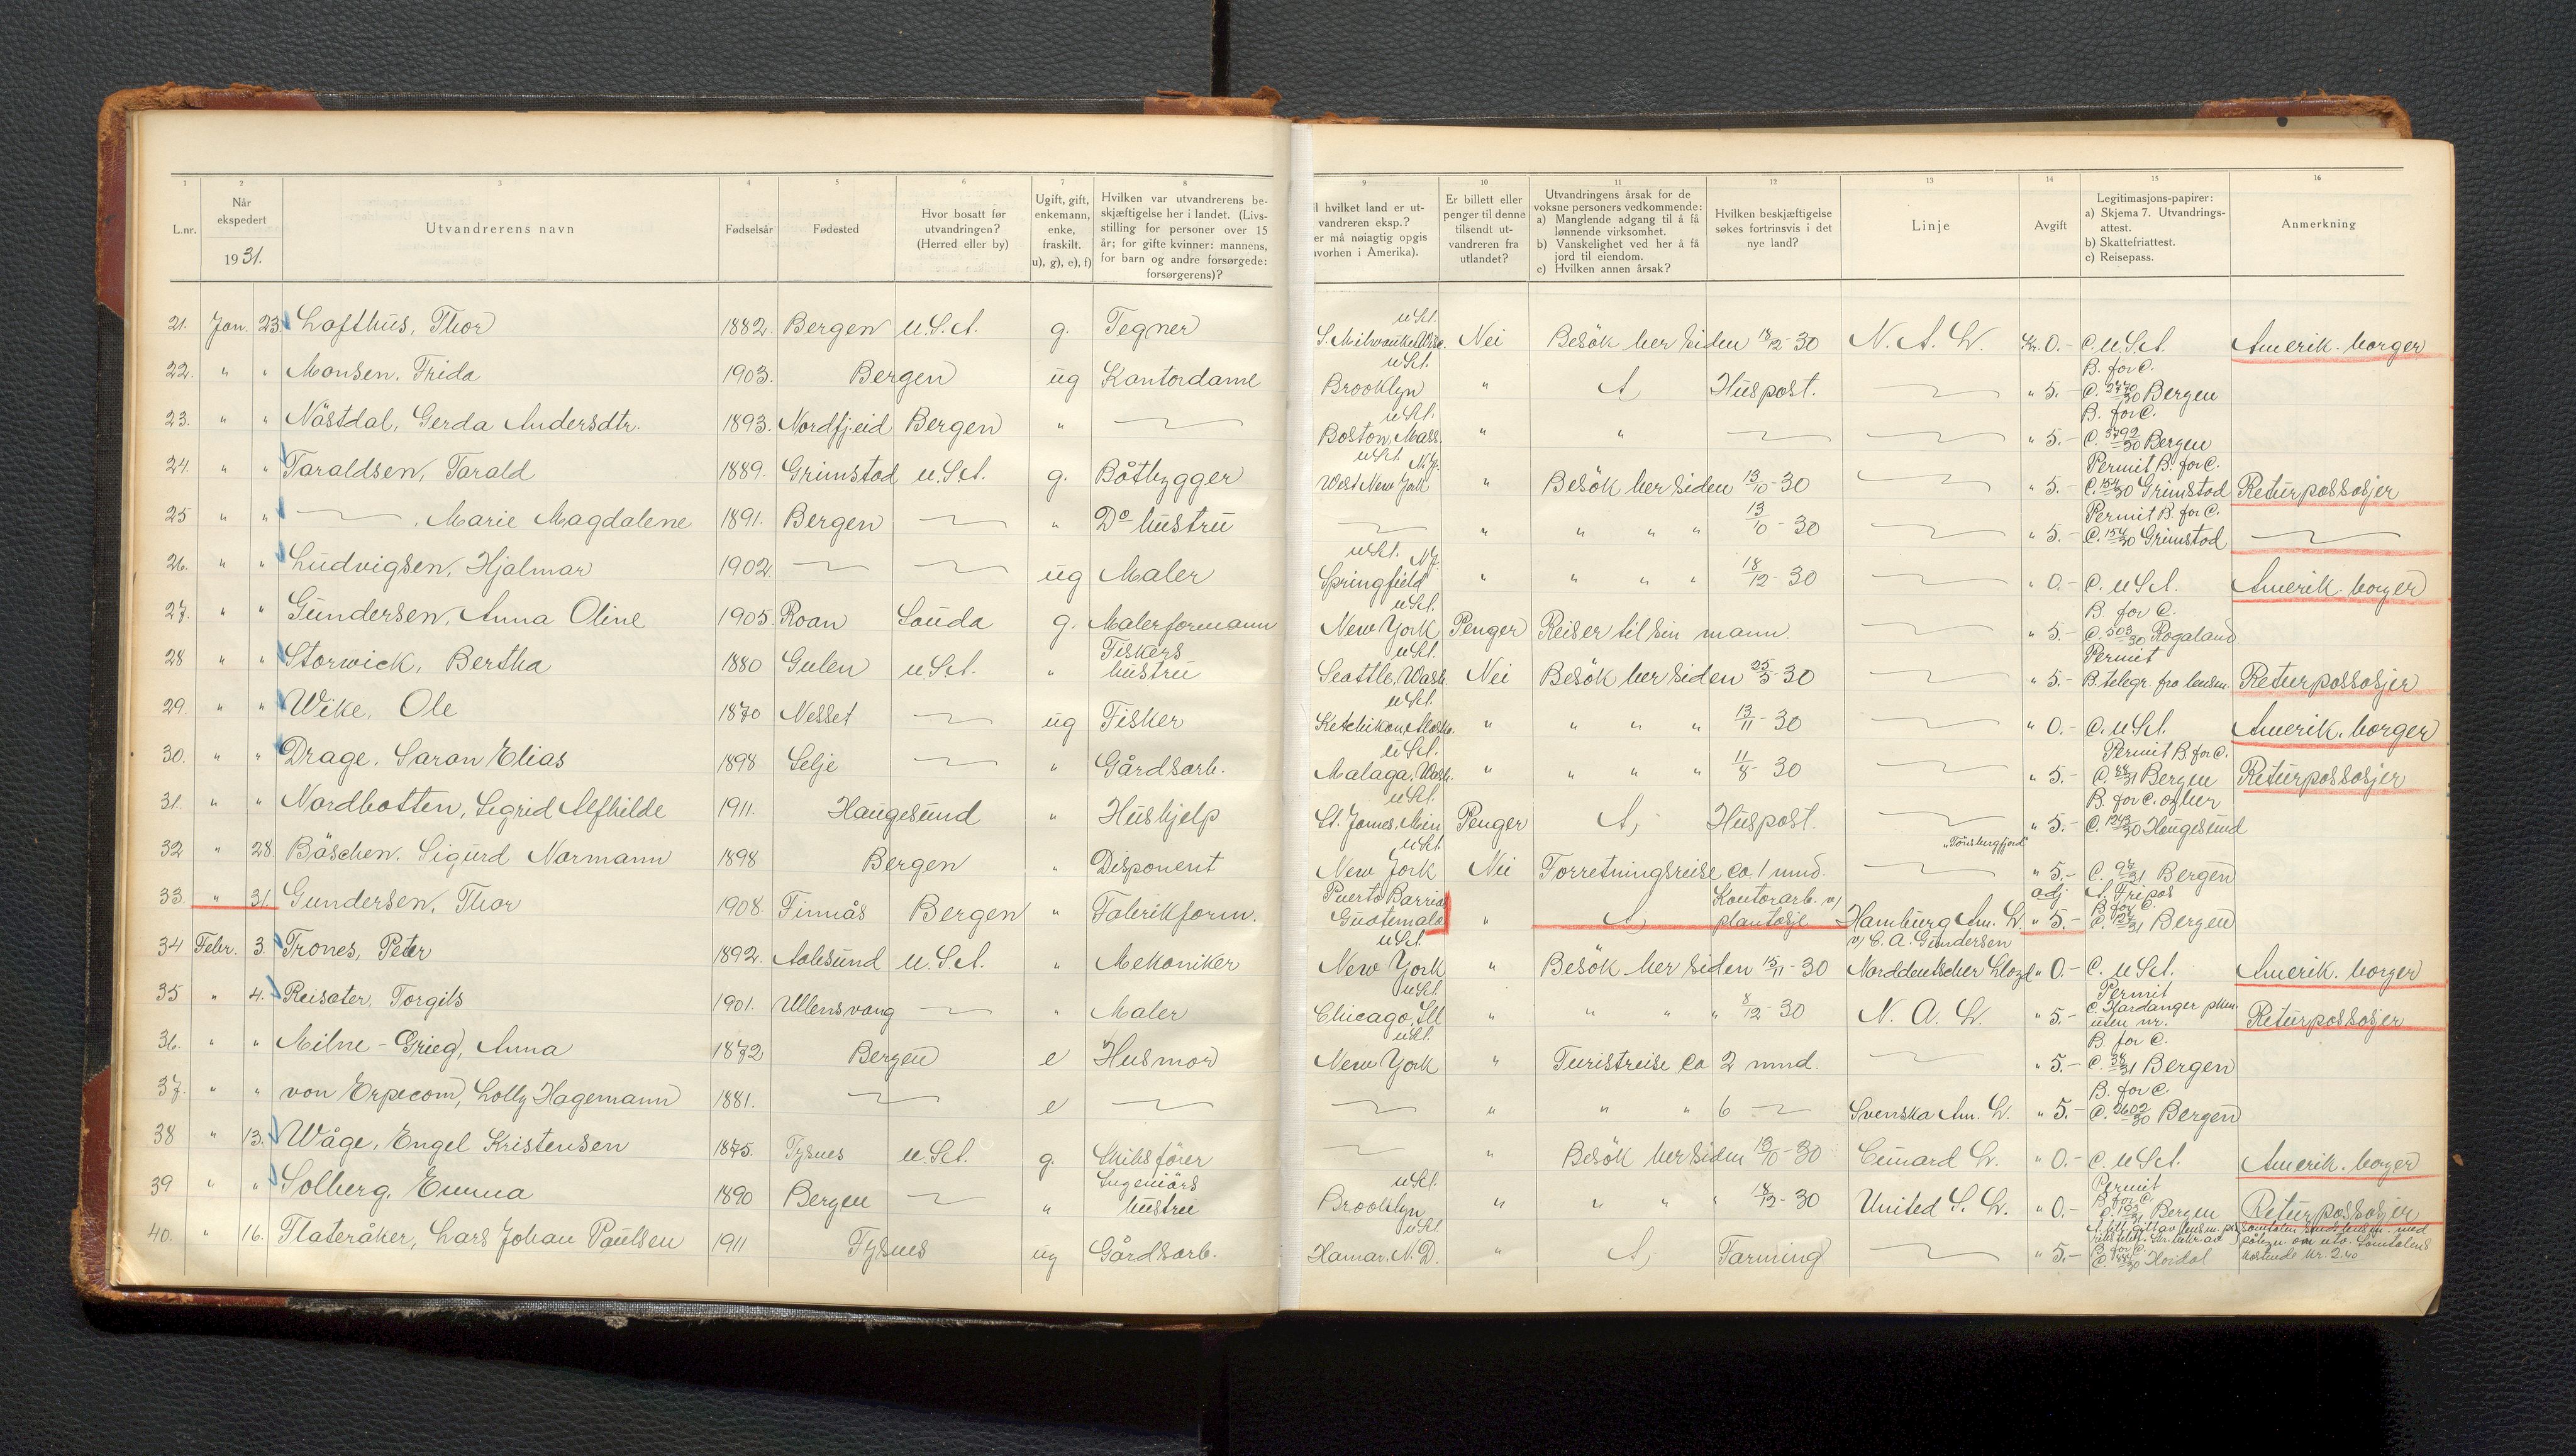 1 2 3 4 5 6 7 8 9 10 11 12 13 14 15 16
L.nr. | Når ekspedert 1931. | Utvandrerens navn | Fødselsår | Fødested | Hvor bosatt før utvandringen? (Herred eller by) | Ugift, gift, enkemann, enke, fraskilt. u), g), e), f) | Hvilken var utvandrerens beskjæftigelse her i landet. (Livsstilling for personer over 15 år; for gifte kvinner: mannens, for barn og andre forsørgede: forsørgerens)? | l hvilket land er utvandreren eksp.? er må nøiagtig opgis hvorhen i Amerika). | Er billett eller penger til denne tilsendt utvandreren fra utlandet? | Utvandringens årsak for de voksne personers vedkommende: a) Manglende adgang til å få lønnende virksomhet. b) Vanskelighet ved her å få jord til eiendom. c) Hvilken annen årsak? | Hvilken beskjæftigelse søkes fortrinsvis i det nye land? | Linje | Avgift | Legitimasjons-papirer: a) Skjema 7. Utvandringsattest. b) Skattefriattest. c) Reisepass. | Anmerkning
21. Jan. 23. Lofthus, Thor 1882. Bergen U.S.A. g. Tegner U.S.A. S. Milwaukee Wisc. Nei Besök her siden 18/12-30 N. A. L. Kr. 0.- C. U.S.A. Amerik. borger
22. " " Monsen, Frida 1903. Bergen ug Kontordame U.S.A. Brooklyn " A Huspost. — " 5.- B. for C. C. 2770/30 Bergen
23. " " Nåstdal, Gerda Andersdtr. 1893. Nordfj.eid Bergen " — U.S.A. Boston, Mass. " " — — " 5.- B. for C. C. 3792/30 Bergen
24. " " Taraldsen, Tarald 1889. Grimstad U.S.A. g. Båtbygger U.S.A. N.J. West New York " Besök her siden 13/10-30 — " 5.- Permit B. for C. C. 154/30 Grimstad Returpassasjer
25 " " — , Marie Magdalene 1891. Bergen — " Do hustru — " " " " 13/10-30 — " 5.- Permit B. for C. C. 154/30 Grimstad —
26. " " Ludvigsen, Hjalmar 1902 — — ug Maler U.S.A. N.J. Springfield " " " " 18/12-30 — " 0.- C. U.S.A. Amerik. borger
27. " " Gundersen, Anna Oline 1905. Roan Sauda g. Malerformann U.S.A. New York Penger Reiser til sin mann. — " 5.- B. for C. C. 503/30 Rogaland
28 " " Storwick, Bertha 1880 Gulen U.S.A. " Fiskers hustru U.S.A. Seattle, Wash. Nei Besök her siden 25/5-30 — " 5.- Permit B. telegr. fra lensm. Returpassasjer
29. " " Wike, Ole 1870 Nesset — ug Fisker U.S.A. Ketchikan, Alaska. " " " " 13/11-30 — " 0.- C. U.S.A. Amerik. borger
30. " " Drage, Saron Elias 1898 Selje — " Gårdsarb. U.S.A. Malaga, Wash. " " " " 11/8-30 — " 5.- Permit B. for C. C. 88/31 Bergen Returpassasjer
31. " " Nordbotten, Sigrid Alfhilde 1911. Haugesund " Hushjelp U.S.A. St. James, Min Penger A, Huspost. — " 5.- B. for C. C. 1243/30 Haugesund
32 " 28. Båschen, Sigurd Normann 1898 Bergen " Disponent U.S.A. New York Nei Forretningsreise ca. 1 mnd. "Tönsbergfjord" — " 5.- C. 97/31 Bergen
33. " 31. Gundersen, Thor 1908. Finnås Bergen " Fabrikform. Puerto Barrios Guatemala " A, Kontorarb. v/ plantasje Hamburg Am. L. v/ C. A. Gundersen " 5.- A. Fripos B for C. C. 127/31 Bergen
34 Febr. 3 Trones, Peter 1892. Aalesund U.S.A. " Mekaniker U.S.A. New York " Besök her siden 15/11-30 Norddeutscher Lloyd " 0.- C. U.S.A. Amerik. borger
35 " 4. Reisater, Torgils 1901. Ullensvang — " Maler U.S.A. Chicago, Ill " " " " 8/12-30 N. A. L. " 5.- Permit C. Hardanger uten nr. Returpassasjer
36. " " Milne-Grieg, Anna 1872 Bergen e Husmor U.S.A. New York " Turistreise ca 2 mnd. — " 5.- B. for C. C. 38/31 Bergen
37. " " von Erpecom, Lolly Hagemann 1881. — e — — " " " 6 — Svenska Am. L. " 5.- B. for C. C. 2602/30 Bergen
38 " 13. Wåge, Engel Kristensen 1875. Tysnes U.S.A. g. Skibsförer — " Besök her siden 13/10-30 Cunard L. " 0.- C. U.S.A. Amerik. borger
39 " " Solberg, Emma 1890 Bergen — " Ingeniörs hustru U.S.A. Brooklyn " " " " 18/12-30 United S. L. " 0.- Permit B. for C. Bergen Returpassasjer
40. " 16. Flateråker, Lars Johan Paulsen 1911 Tysnes ug Gårdsarb. U.S.A. Hamar, N. D. " A, Farming — " 5.- B. for C. Hordal kostende kr. 2.40